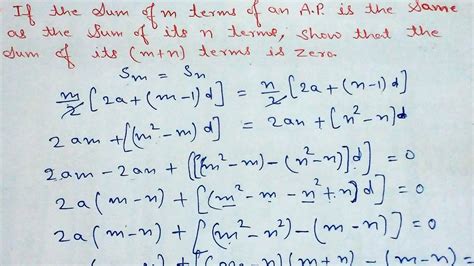 If the sum of m terms of an A.P. is the same
as the sum of its n terms, show that the
sum of its (m+n) terms is zero.
Sm = Sn
m/2 [2a+(m-1)d] = n/2 [2a+(n-1)d]
2am + [(m²-m)d] = 2an + [n²-n)d
2am - 2an + [(m²-m) - (n²-n)]d] = 0
2a(m-n) + [(m²-m-n²+n)d] = 0
2a(m-n) + [(m²-n²) - (m-n)] = 0
(m-n)(m+n) -